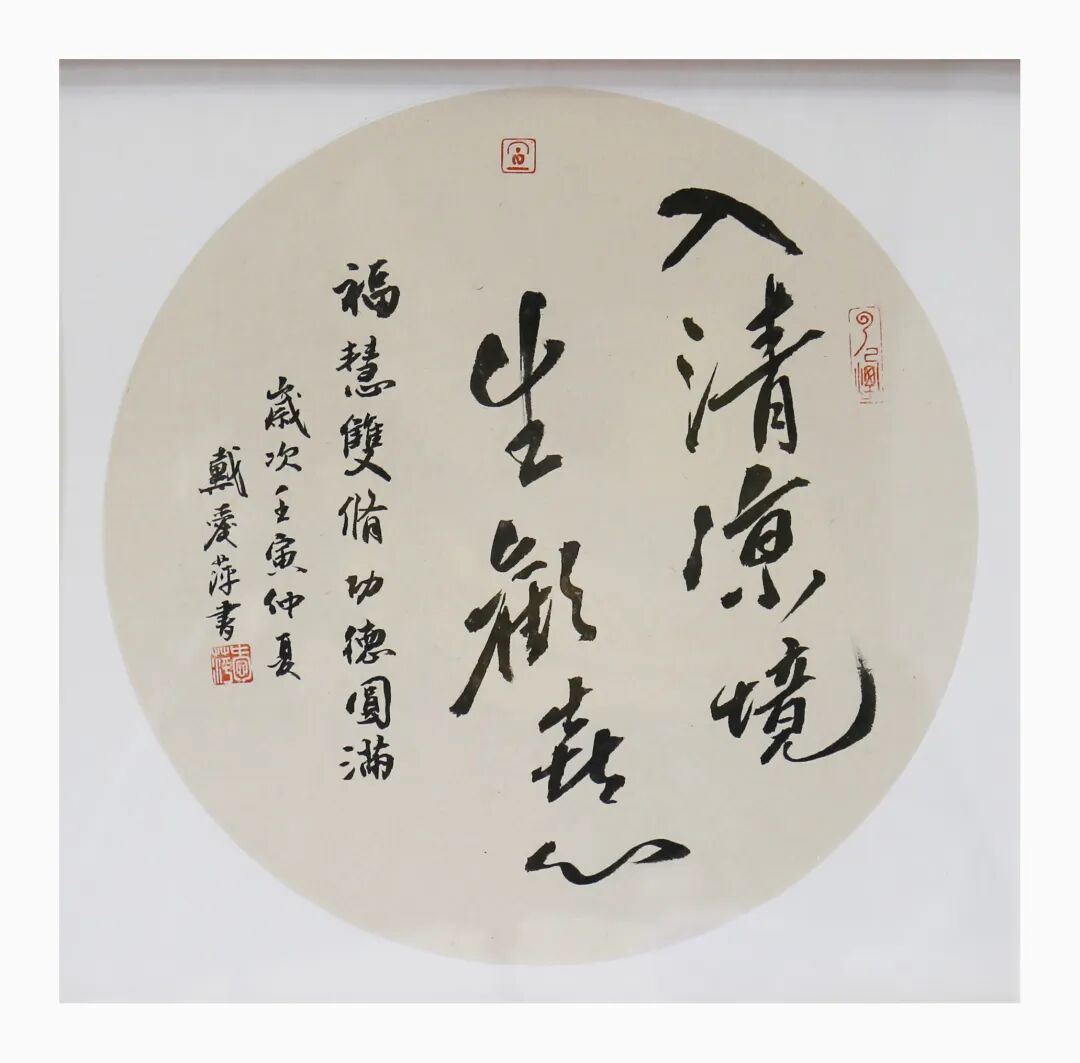 入清涼境
生歡喜心
福慧雙脩功德圓滿
歲次壬寅仲夏
戴愛萍書